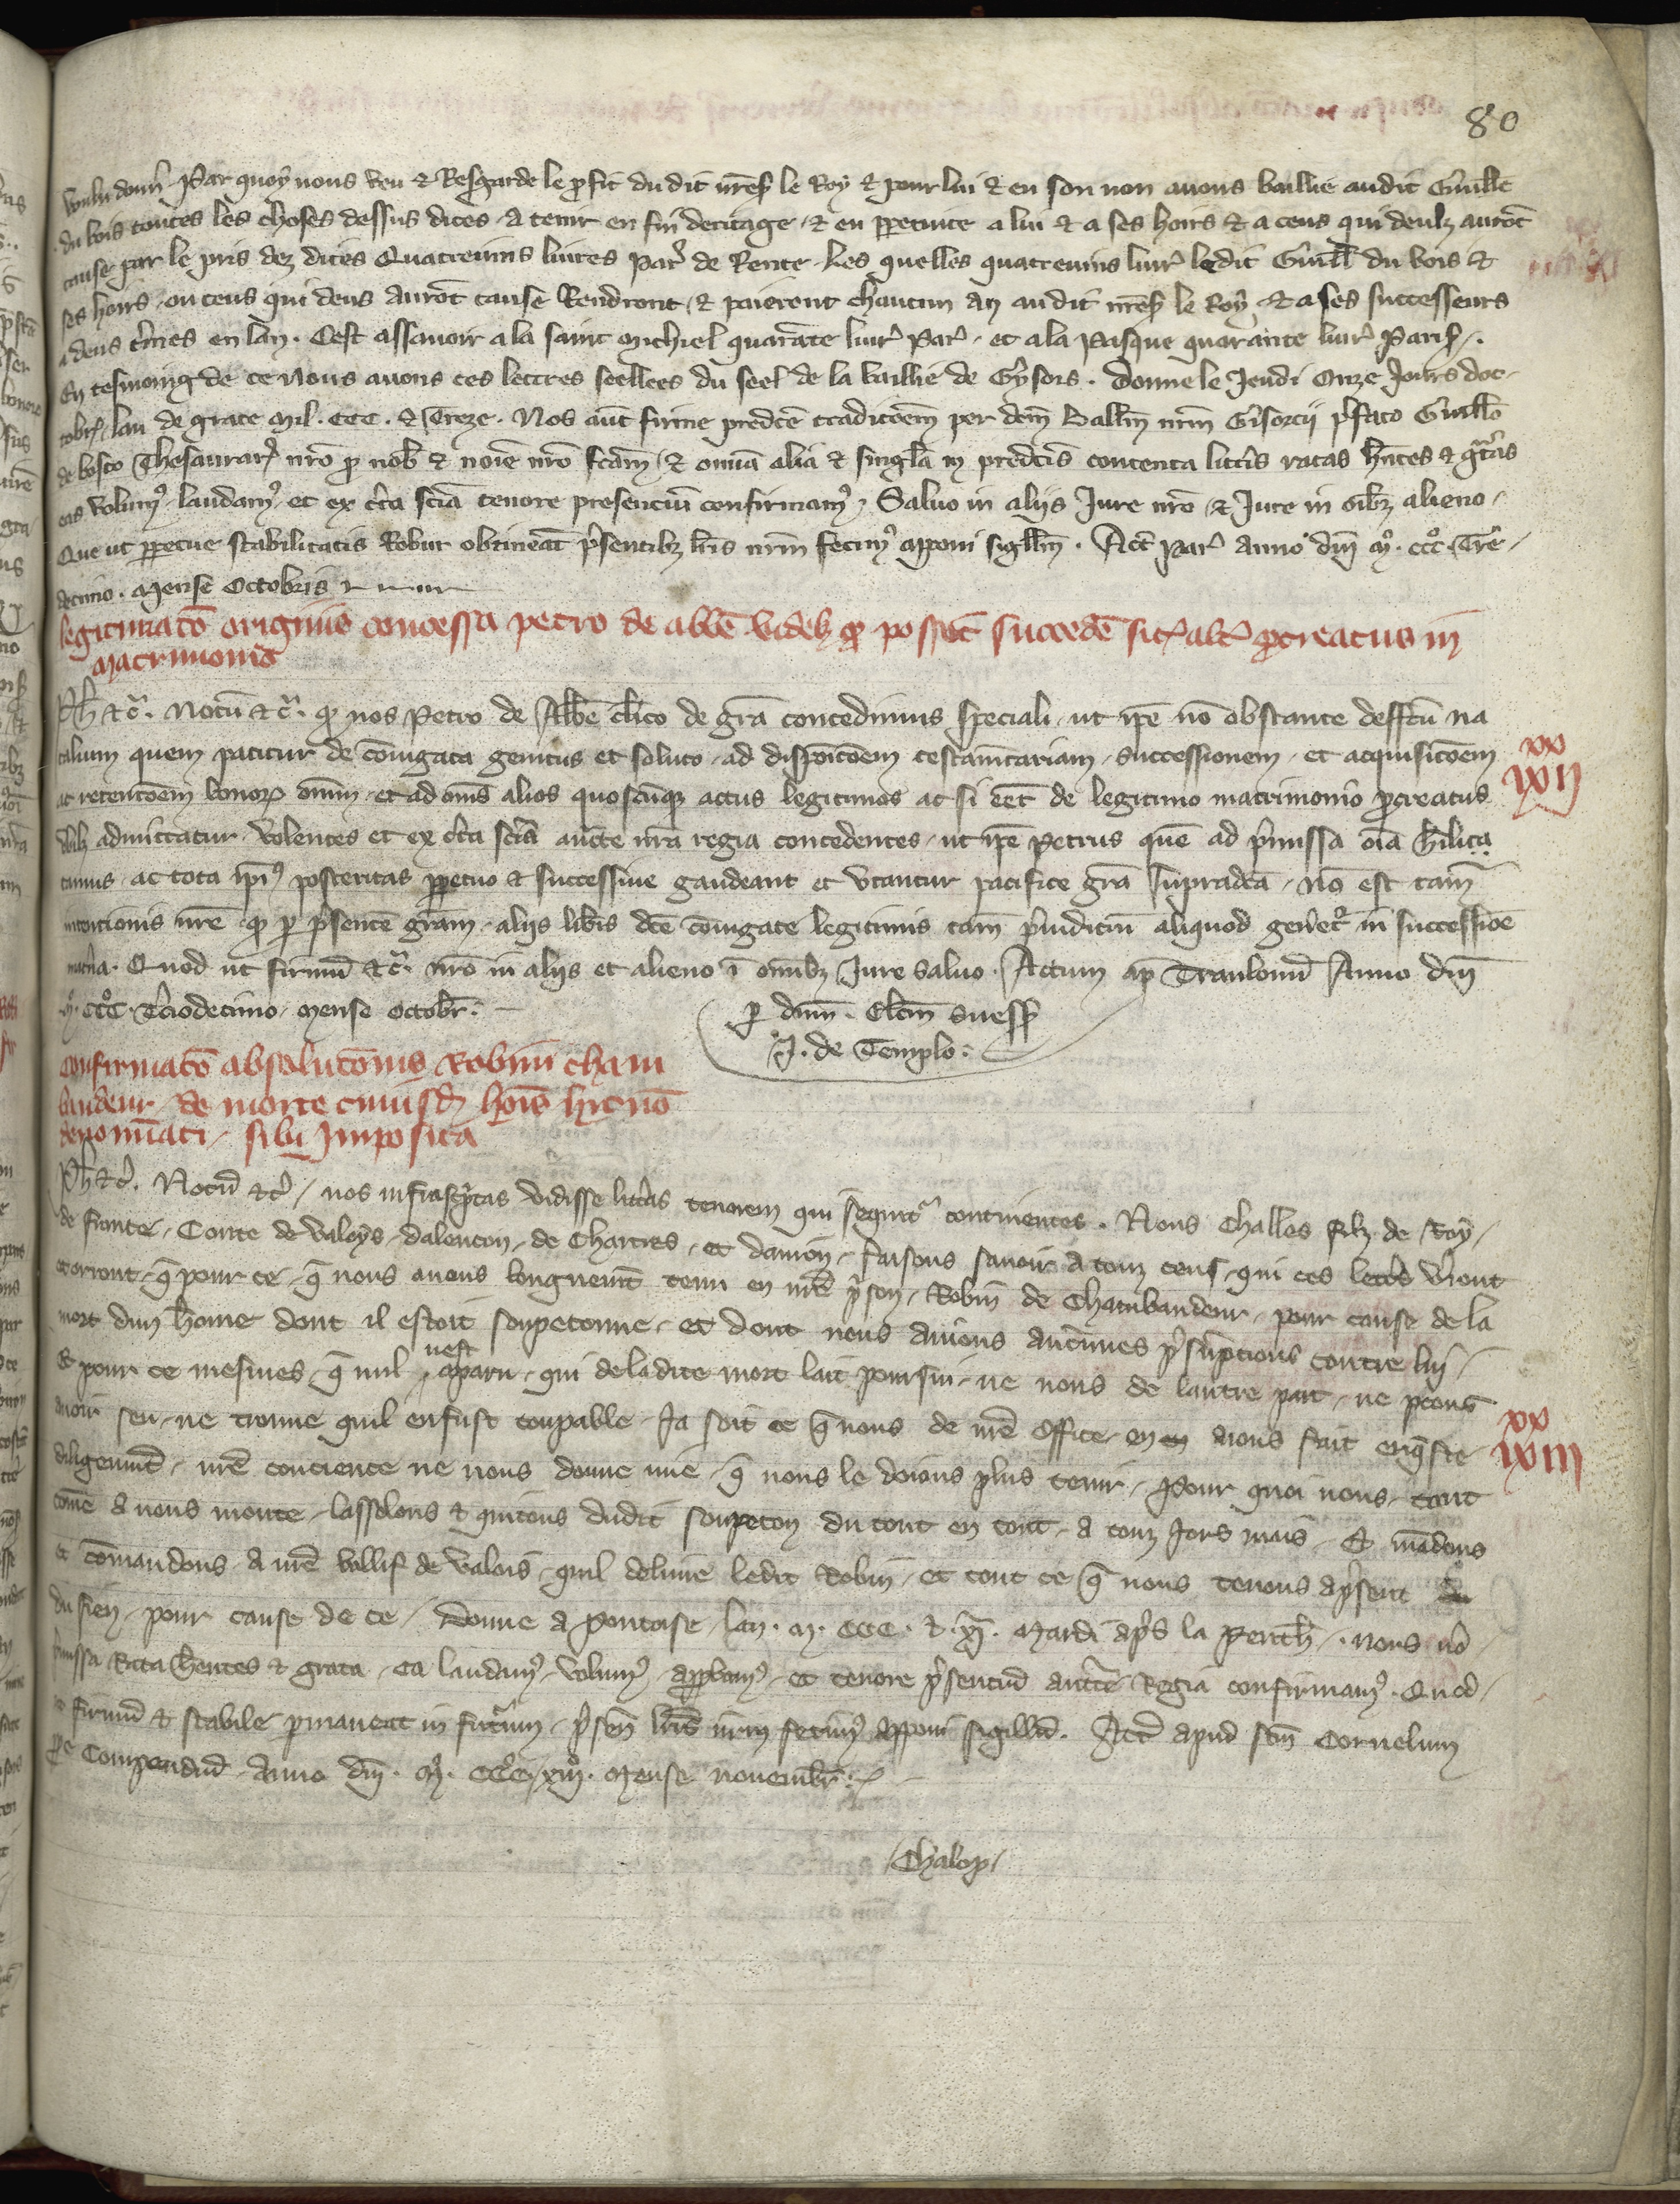 80
voulu donner. Par quoy nous veu & Resgarde le ꝓfit du dit nreſ le Roy & pour lui & en son non auons baillie audit Guille
du bois toutes les choses dessus dites a tenir en fin deritage & en ꝑpetuite a lui & a ses hoirs & a ceus qui deulz aurōt
cause par le pris dez dites Quatreuins liures Par̉ de Rente. Les quelles quatreuins liur̉ ledit Guill̄ du bois &
ses hoirs ou ceus qui deus aurōt cause Rendront & paieront chaucun an audit nreſ le Roy & a ses successeurs
a deus t̉mes en lan. Cest assauoir a la saint michiel quarāte liur̉ Par̉. et a la Pasque quarante liur̉ Pariſ.
En tesmoing de ce nous auons ces lettres seellees du seel de la baillie de Gysors. Donne le Jeudi Onze Jours doc-
tobr̉ lan de grace mil. CCC. & Treze. Nos aūt firme predcē tradicōem per dcm̄ Balliu̅ nrm̄ Gisorcij p̉fato Guill̄o
de bosco Thesaurar̉ nr̄o ꝓ nob̄ & noīe nr̄o fcām & omnia alia & singl̄a in predcīs contenta litt̉is ratas hn̄tes & gratas
eas volum9 laudam9 et ex c̉ta scīa tenore presenciū confirmam9 Saluo in alijs Jure nr̄o & Jure in oībz alieno.
Que ut ꝑpetue stabilitatis Robur obtineāt p̉sentibz lr̄is nrm̄ fecim9 apponi sigll̄m. Act̄ Par̉ anno dn̄i mͦ. cccͦ. Tr̉e-
decimo. mense Octobris
legitimacō originis concessa petro de abbē. videlz ꝙ possit succedē sic̉ alt̉ ꝓcreatus in
matrimonio
Ph̄ &c̉. Notū &c̉. ꝙ nos Petro de Abbē cl̄ico de grā concedimus speciali ut ip̄e nō obstante deffcū na
talium quem patitur de cōiugata genitus et soluto ad disposicōem testamētariam successionem et acquisicōem
ac retencōem bonor̉ omniū et ad om̄s alios quoscūqꝫ actus legitimos ac si eēt de legitimo matrimonio ꝓcreatus
xx
iiijxij
admittatur volentes et ex c̉ta scīa aucte nr̄a regia concedentes ut ip̄e Petrus quē ad p̉missa oīa habilita
mus ac tota ip̄i9 posteritas ꝑpetuo & successiue gaudeant et vtantur pacifice grā supradcā. Nō est tam̄
intencionis nr̄e ꝙ ꝑ p̉sentē grām alijs lib̉is dcē cōiugate legitimis tam̄ p̉iudiciū aliquod gen̉et̉ in successiōe
mat̉na. Quod ut firmū &c̉. nr̄o in alijs et alieno ī om̄ibz Jure saluo. Actum ap̄ Tranlonū Anno dn̄i
mͦ. cccͦ. T̉ciodecimo mense octobr̉.
ꝑ dnm̄. Elcm̄ suessſ
J. de Templo.
Confirmacō absolucōnis Robini cham
baudeur de morte cuiusdā hoīs hic nō
denominati sibi Imposita
Ph̄ &c̉. Notū &c̉ nos infrasc̉ptas vidisse litt̉as tenorem qui sequit̉ continentes. Nous Challes filz de Roy
de france Conte de Valoys dalencon de Chartres et daniou faisons sauoir a touz ceus qui ces lett̉s v̉ront
et orront q̄ pour ce q̄ nous auons longuemt̄ tenu en nr̄e p̉son Robin de Chambaudeur pour cause de la
mort dun home dont il estoit soupeconne et dont nous auions aucunes p̉sūpcions contre lui
& pour ce mesmes q̄ nul nest aparu qui de ladite mort lait poursui ne nous de lautre part ne peons
auoir seu ne trouue quil en fust coupable Ja soit ce q̄ nous de nr̄e Office en auons fait enq̄ste
xx
iiijxiij
diligenmt̄ nr̄e concience ne nous donne mie q̄ nous le doions plus tenir. Pour quoi nous tant
come a nous monte lassolons & quitons dudit soupecon du tout en tout a touz Jors mais Et mādons
et cōmandons a nr̄e baillif de Valois quil deliure ledit Robin et tout ce q̄ nous tenons ap̉sent
du sien pour cause de ce. Donne a Pontoise lan. M. CCC. & xij. Mardi ap̉s la Penth̄. Nous v̉o
p̉missa Rata hn̄tes & grata ea laudam9 volum9 approbam9 et tenore p̉sentiū auctē Regia confirmam9. Quod
ut firmū & stabile ꝑmaneat in futurum p̉sen̄ lr̄is nrm̄ fecim9 apponi sigillū. Actū apud scm̄ Cornelium
ꝓpe Compendiū Anno dn̄i. Mͦ. CCCͦ. xiijͦ. Mense nouembr̉.
Chalop